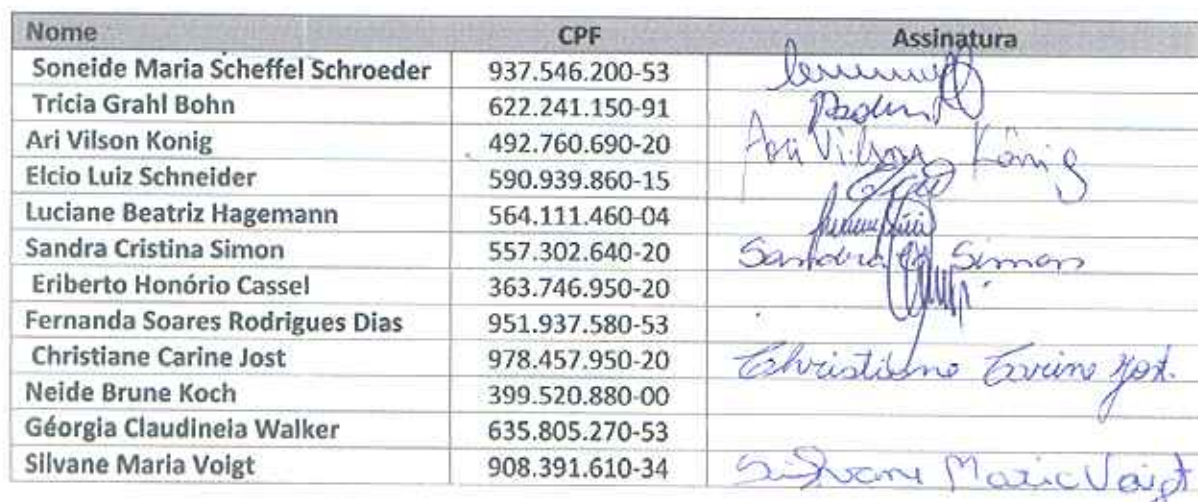 Nome CPF Assinatura
Soneide Maria Scheffel Schroeder 937.546.200-53
Tricia Grahl Bohn 622.241.150-91
Ari Vilson Konig 492.760.690-20 Ari Vilson König
Elcio Luiz Schneider 590.939.860-15
Luciane Beatriz Hagemann 564.111.460-04
Sandra Cristina Simon 557.302.640-20 Sandra C. Simon
Eriberto Honório Cassel 363.746.950-20
Fernanda Soares Rodrigues Dias 951.937.580-53
Christiane Carine Jost 978.457.950-20 Christiane Carine Jost.
Neide Brune Koch 399.520.880-00
Géorgia Claudineia Walker 635.805.270-53
Silvane Maria Voigt 908.391.610-34 Silvane Maria Voigt